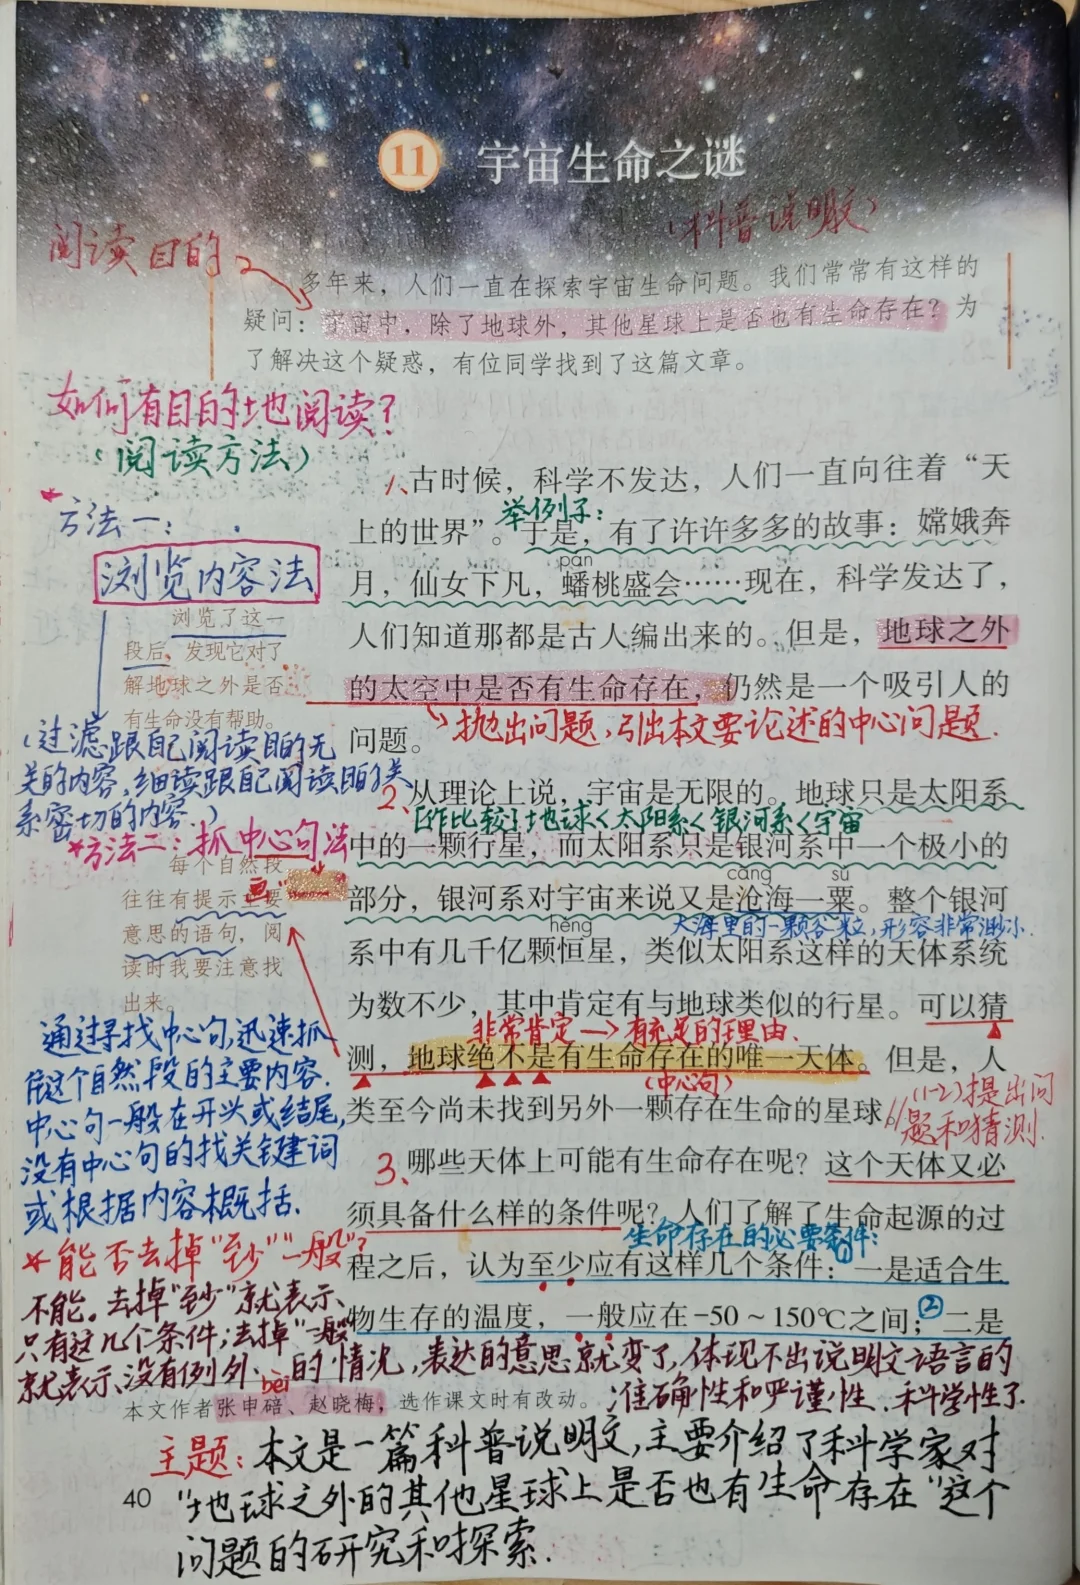 11 宇宙生命之谜
(科普说明文)
阅读目的
多年来，人们一直在探索宇宙生命问题。我们常常有这样的
疑问：宇宙中，除了地球外，其他星球上是否也有生命存在？为
了解决这个疑惑，有位同学找到了这篇文章。
如何有目的地阅读？
(阅读方法)
*方法一：
浏览内容法
浏览了这一
段后，发现它对了
解地球之外是否
有生命没有帮助。
(过滤跟自己阅读目的无
关的内容，细读跟自己阅读目的关
系密切的内容。)
*方法二：抓中心句法
每个自然段
往往有提示主要
画"
意思的语句，阅
读时我要注意找
出来。
通过寻找中心句，迅速抓
住这个自然段的主要内容.
中心句一般在开头或结尾，
没有中心句的找关键词
或根据内容概括.
1、古时候，科学不发达，人们一直向往着“天
举例子：
上的世界”。于是，有了许许多多的故事：嫦娥奔
pán
月，仙女下凡，蟠桃盛会……现在，科学发达了，
人们知道那都是古人编出来的。但是，地球之外
的太空中是否有生命存在，仍然是一个吸引人的
问题。
抛出问题，引出本文要论述的中心问题.
2、从理论上说，宇宙是无限的。地球只是太阳系
作比较：地球<太阳系<银河系<宇宙
中的一颗行星，而太阳系只是银河系中一个极小的
cāng sù
部分，银河系对宇宙来说又是沧海一粟。整个银河
大海里的一颗谷粒，形容非常渺小.
héng
系中有几千亿颗恒星，类似太阳系这样的天体系统
为数不少，其中肯定有与地球类似的行星。可以猜
非常肯定→有充足的理由、
测，地球绝不是有生命存在的唯一天体。但是，人
(中心句)
类至今尚未找到另外一颗存在生命的星球。//
(1-2)提出问
题和猜测.
3、哪些天体上可能有生命存在呢？这个天体又必
须具备什么样的条件呢？人们了解了生命起源的过
生命存在的必要条件：
程之后，认为至少应有这样几个条件：①一是适合生
物生存的温度，一般应在-50～150℃之间；②二是
*能否去掉“至少”“一般”？
不能。去掉“至少”就表示
只有这几个条件；去掉“一般”
就表示没有例外的情况，表达的意思就变了，体现不出说明文语言的
准确性和严谨性、科学性了.
bèi
本文作者张申碚、赵晓梅，选作课文时有改动。
主题：本文是一篇科普说明文，主要介绍了科学家对
“地球之外的其他星球上是否也有生命存在”这个
问题的研究和探索.
40